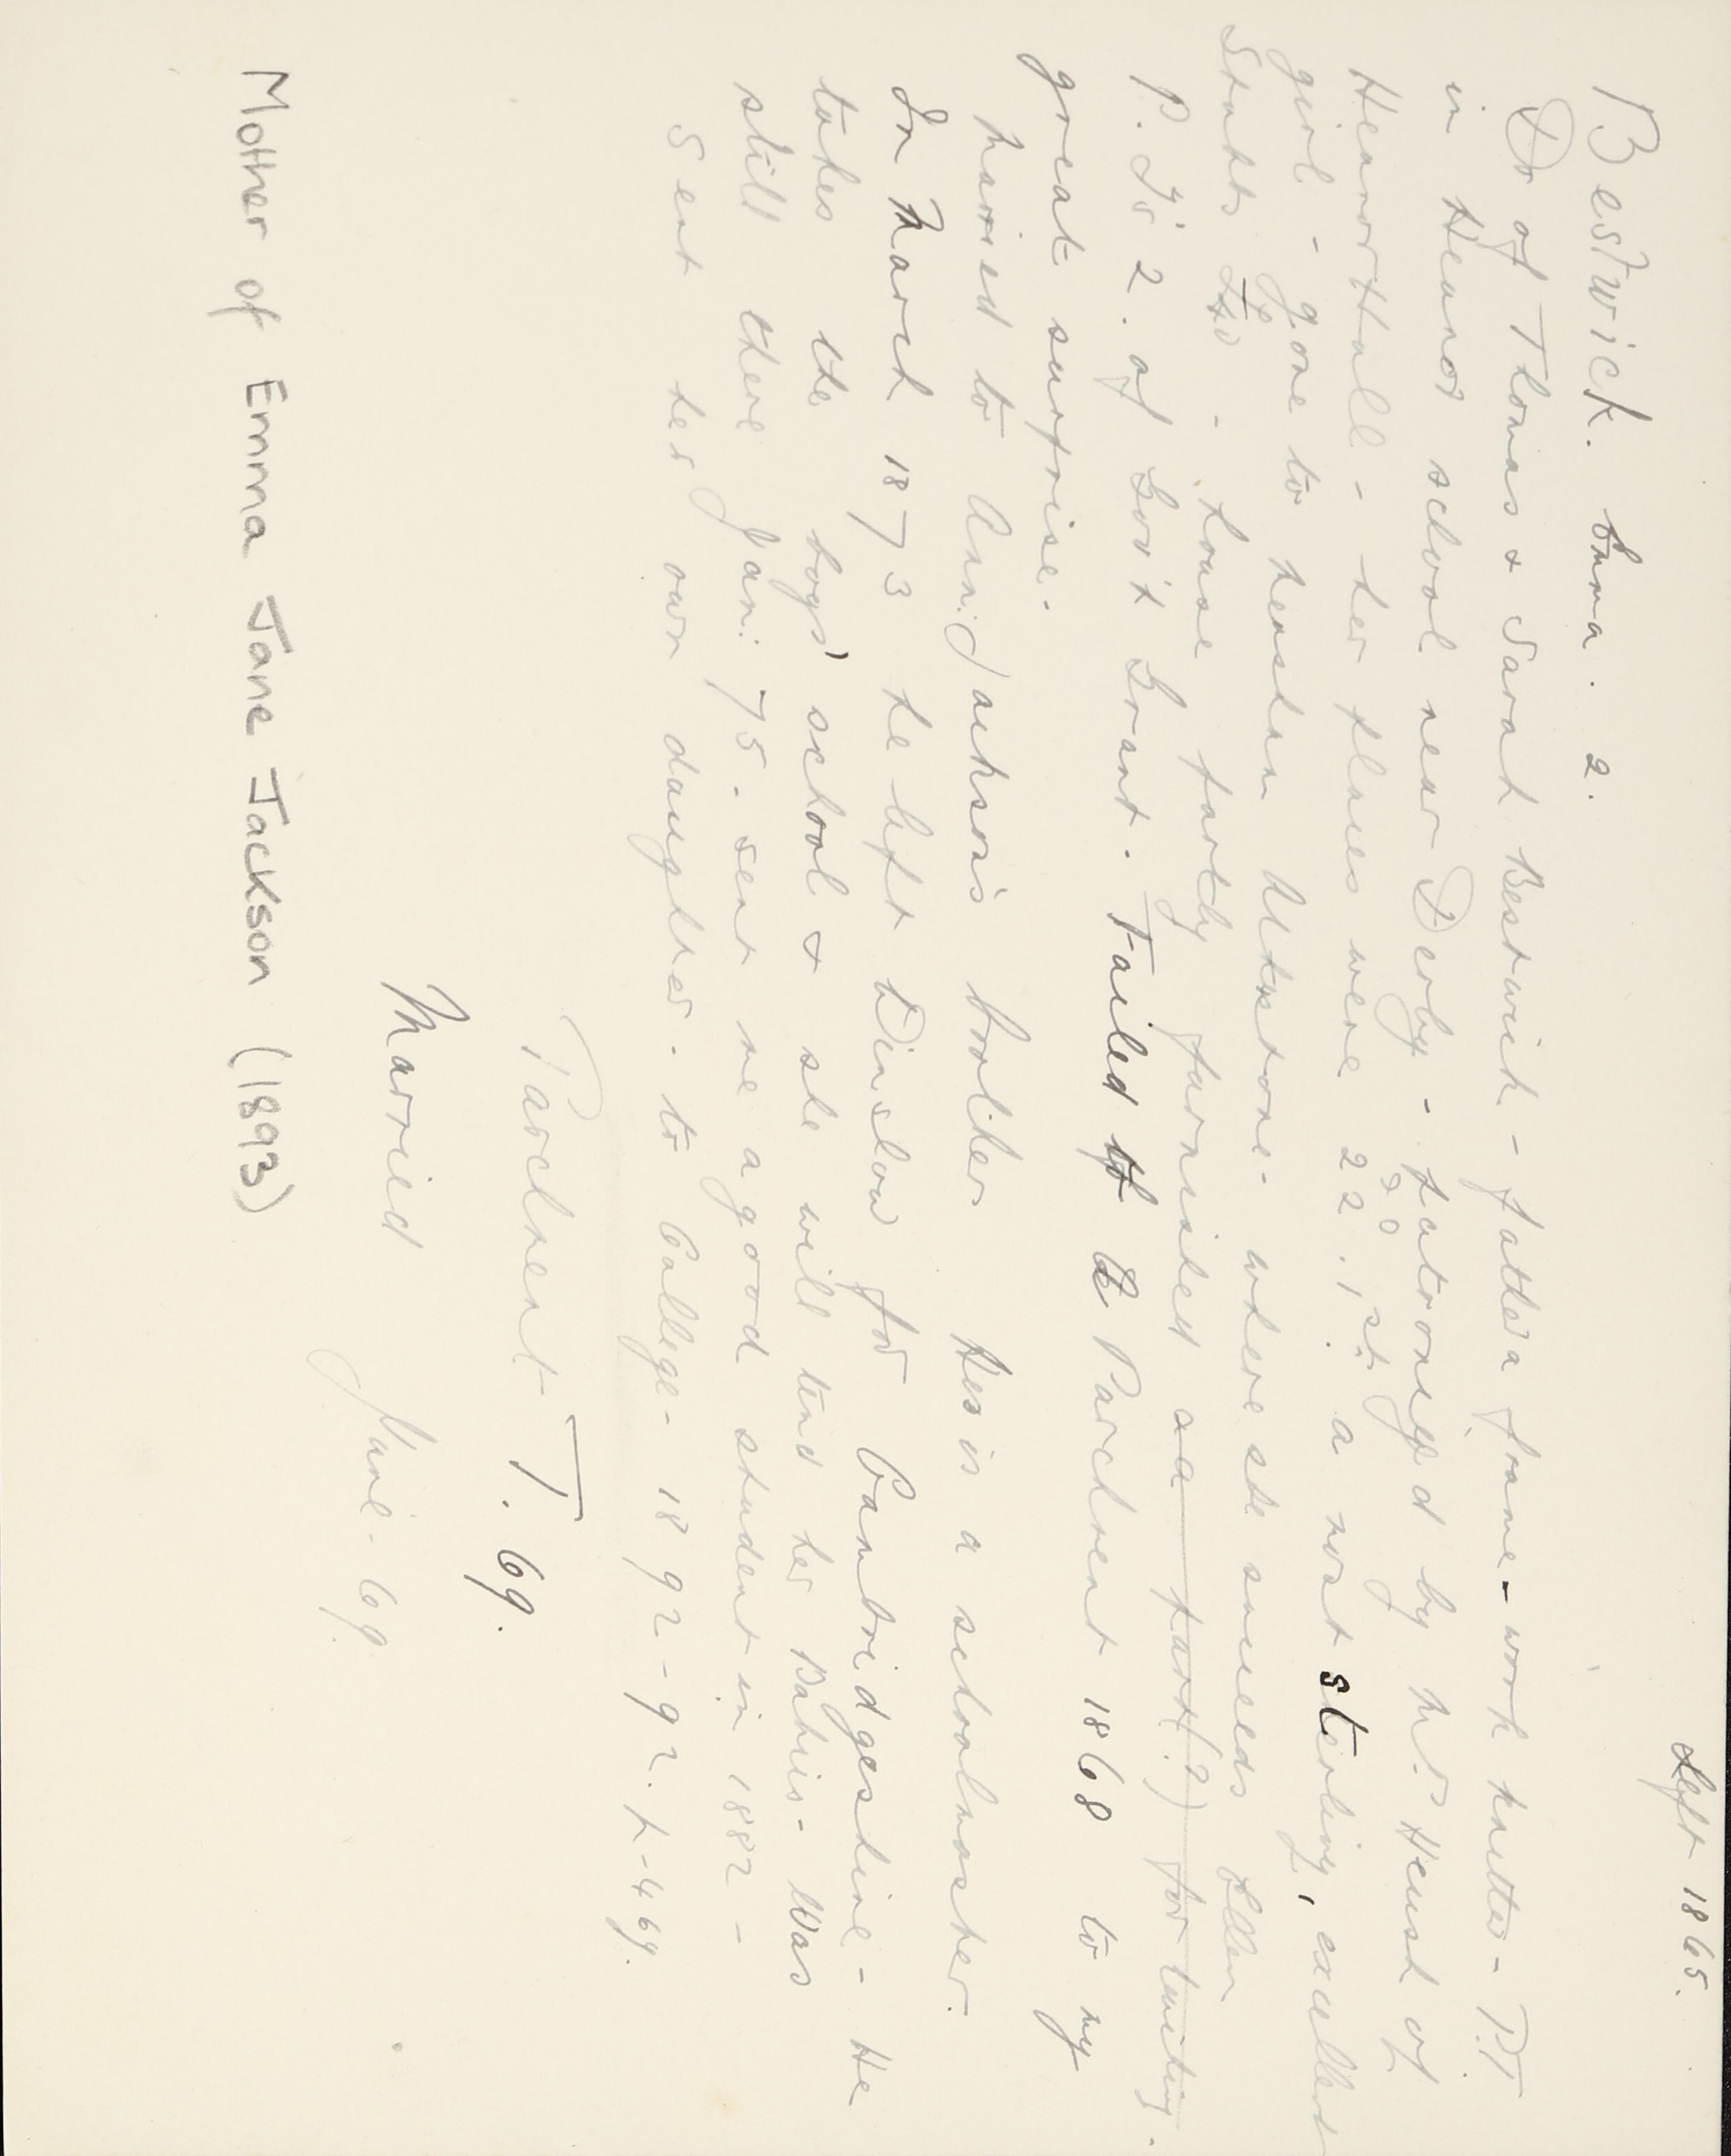 Left 1865.
Bestwick. Emma. 2.
Dr of Thomas & Sarah Bestwick - father a frame-work knitter - P.T
in Heanor school near Derby - patronized by Mrs Heush of
Heanor Hall - her places were 22. 30. 1st. a most sterling, excellent
girl - gone to near Ulverstone - where she succeeds Ellen
Stubbs £40 - house partly furnished as part(?) for lighting.
P. Is 2. of Gov't Grant. Failed of the Parchment 1868 to my
great surprise.
Married to Ann Jackson's brother He is a schoolmaster.
In March 1873 he left Winslow for Cambridgeshire - He
takes the boys' school & she will tend her Babies - Was
still there Jan: 75 - sent me a good student in 1882 -
Sent her own daughter - to College - 1892 - 92. p-469.
Parchment T. 69.
Married June - 69.
Mother of Emma Jane Jackson (1893)